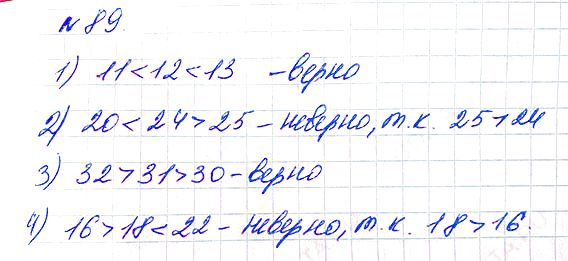 № 89.
1) 11 < 12 < 13 - верно
2) 20 < 24 > 25 - неверно, т.к. 25 > 24
3) 32 > 31 > 30 - верно
4) 16 > 18 < 22 - неверно, т.к. 18 > 16.